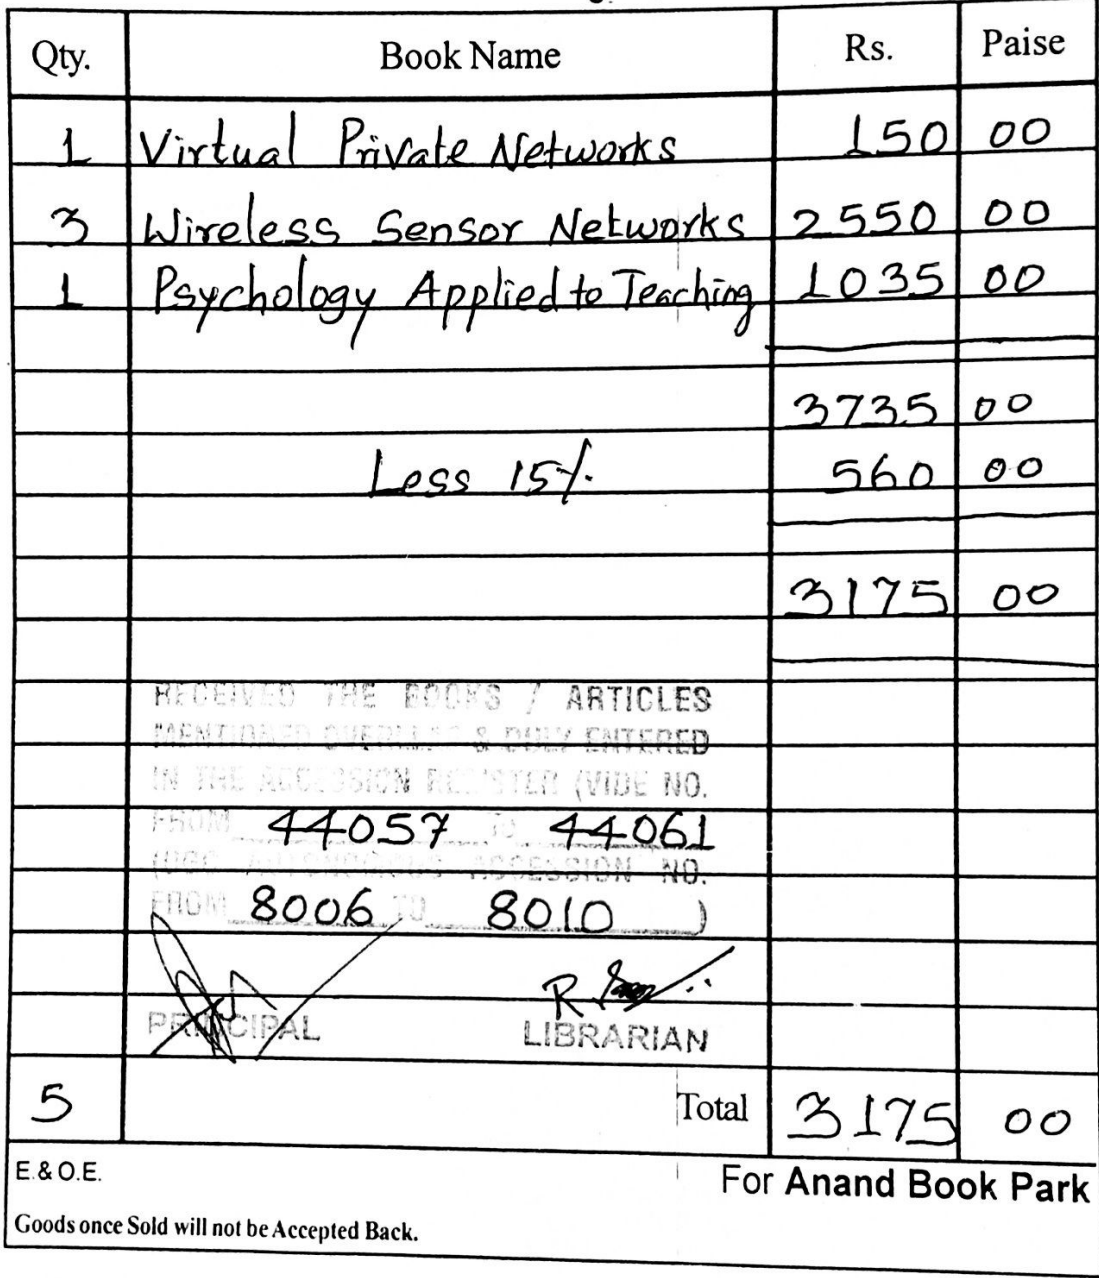 Qty. Book Name Rs. Paise
1 Virtual Private Networks 150 00
3 Wireless Sensor Networks 2550 00
1 Psychology Applied to Teaching 1035 00
3735 00
Less 15% 560 00
3175 00
RECEIVED THE BOOKS / ARTICLES
MENTIONED OVERLEAF & DULY ENTERED
IN THE ACCESSION REGISTER (VIDE NO.
FROM 44057 TO 44061
(UGC AUTONOMOUS ACCESSION NO.
FROM 8006 TO 8010 )
R.
PRINCIPAL LIBRARIAN
5 Total 3175 00
E.&O.E. For Anand Book Park
Goods once Sold will not be Accepted Back.